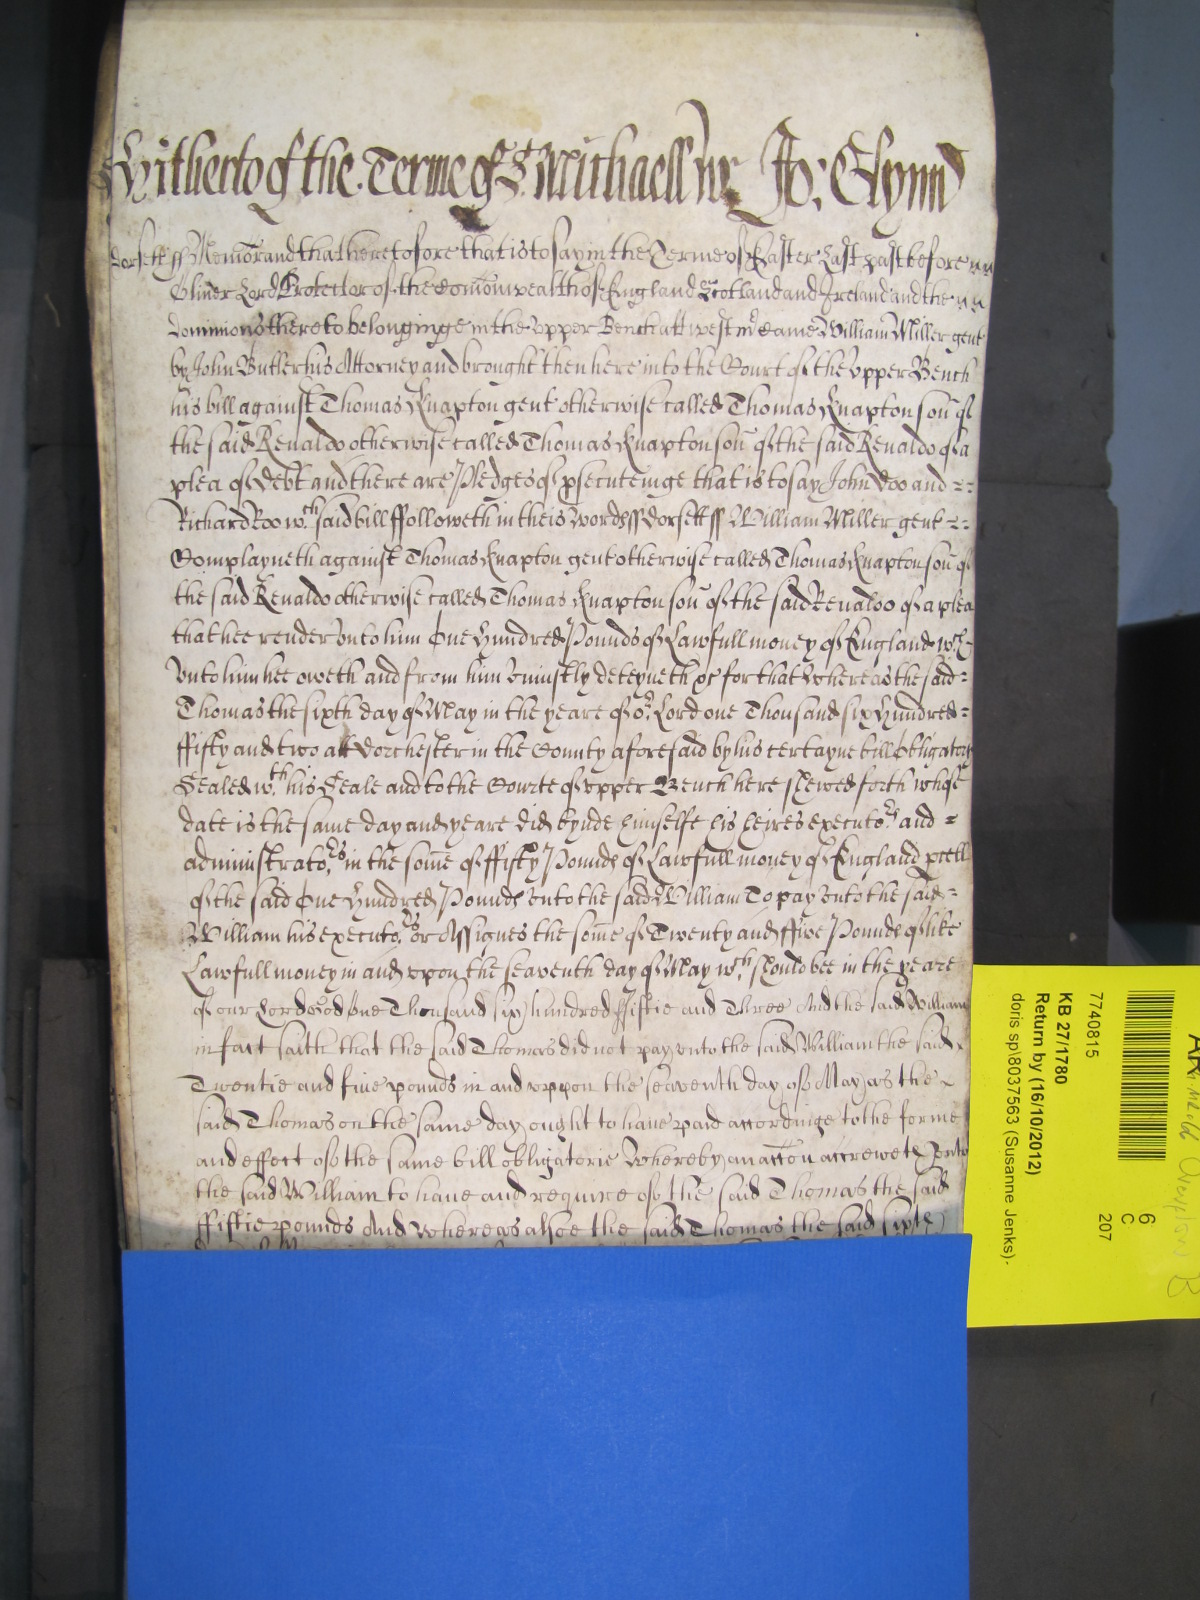 Hitherto of the Terme of St Michaell wr Jo: Glynn
Dorsett ss Memorand that heretofore that is to say in the Terme of Easter Last past before
Oliver Lord Protector of the Comonwealth of England Scotland and Ireland and the
dominions thereto belonginge in the upper Bench att westmr came William Miller gent
by John Butler his Attorney and brought then here into the Court of the upper Bench
his bill against Thomas Knapton gent otherwise called Thomas Knapton son of
the said Renaldo otherwise called Thomas Knapton son of the said Renaldo of a
plea of debt and there are Pledges of psecuteinge that is to say John Doo and
Richard Roo wch said bill ffolloweth in theis words ss Dorsett ss William Miller gent
Complayneth against Thomas Knapton gent otherwise called Thomas Knapton son of
the said Renaldo otherwise called Thomas Knapton son of the said Renaldo of a plea
that hee render unto him One Hundred Pounds of Lawfull money of England wch
unto him hee oweth and from him uniustly deteyneth &c for that whereas the said
Thomas the sixth day of May in the yeare of or Lord one Thousand six Hundred
ffifty and two att Dorchester in the County aforesaid by his certayne bill Obligatory
Sealed wth his Seale and to the Courte of upper Bench here shewed forth whose
date is the same day and yeare did bynde himselfe his heires executors and
administrators in the some of ffifty Pounds of Lawfull money of England pcell
of the said One Hundred Pounds unto the said William To pay unto the said
William his executors or Assignes the some of Twenty and ffive Pounds of like
Lawfull money in and upon the seaventh day of May wch should bee in the yeare
of our Lord God One Thousand six hundred ffiftie and Three And the said William
in fact saith that the said Thomas did not pay unto the said William the said
Twentie and five pounds in and uppon the seaventh day of May as the
said Thomas on the same day ought to have paid accordinge to the forme
and effect of the same bill obligatorie Whereby an accon accreweth unto
the said William to have and require of the said Thomas the said
ffiftie pounds And whereas alsoe the said Thomas the said sixth
7740815
KB 27/1780
Return by (16/10/2012)
doris sp\8037563 (Susanne Jenks)-
6
C
207